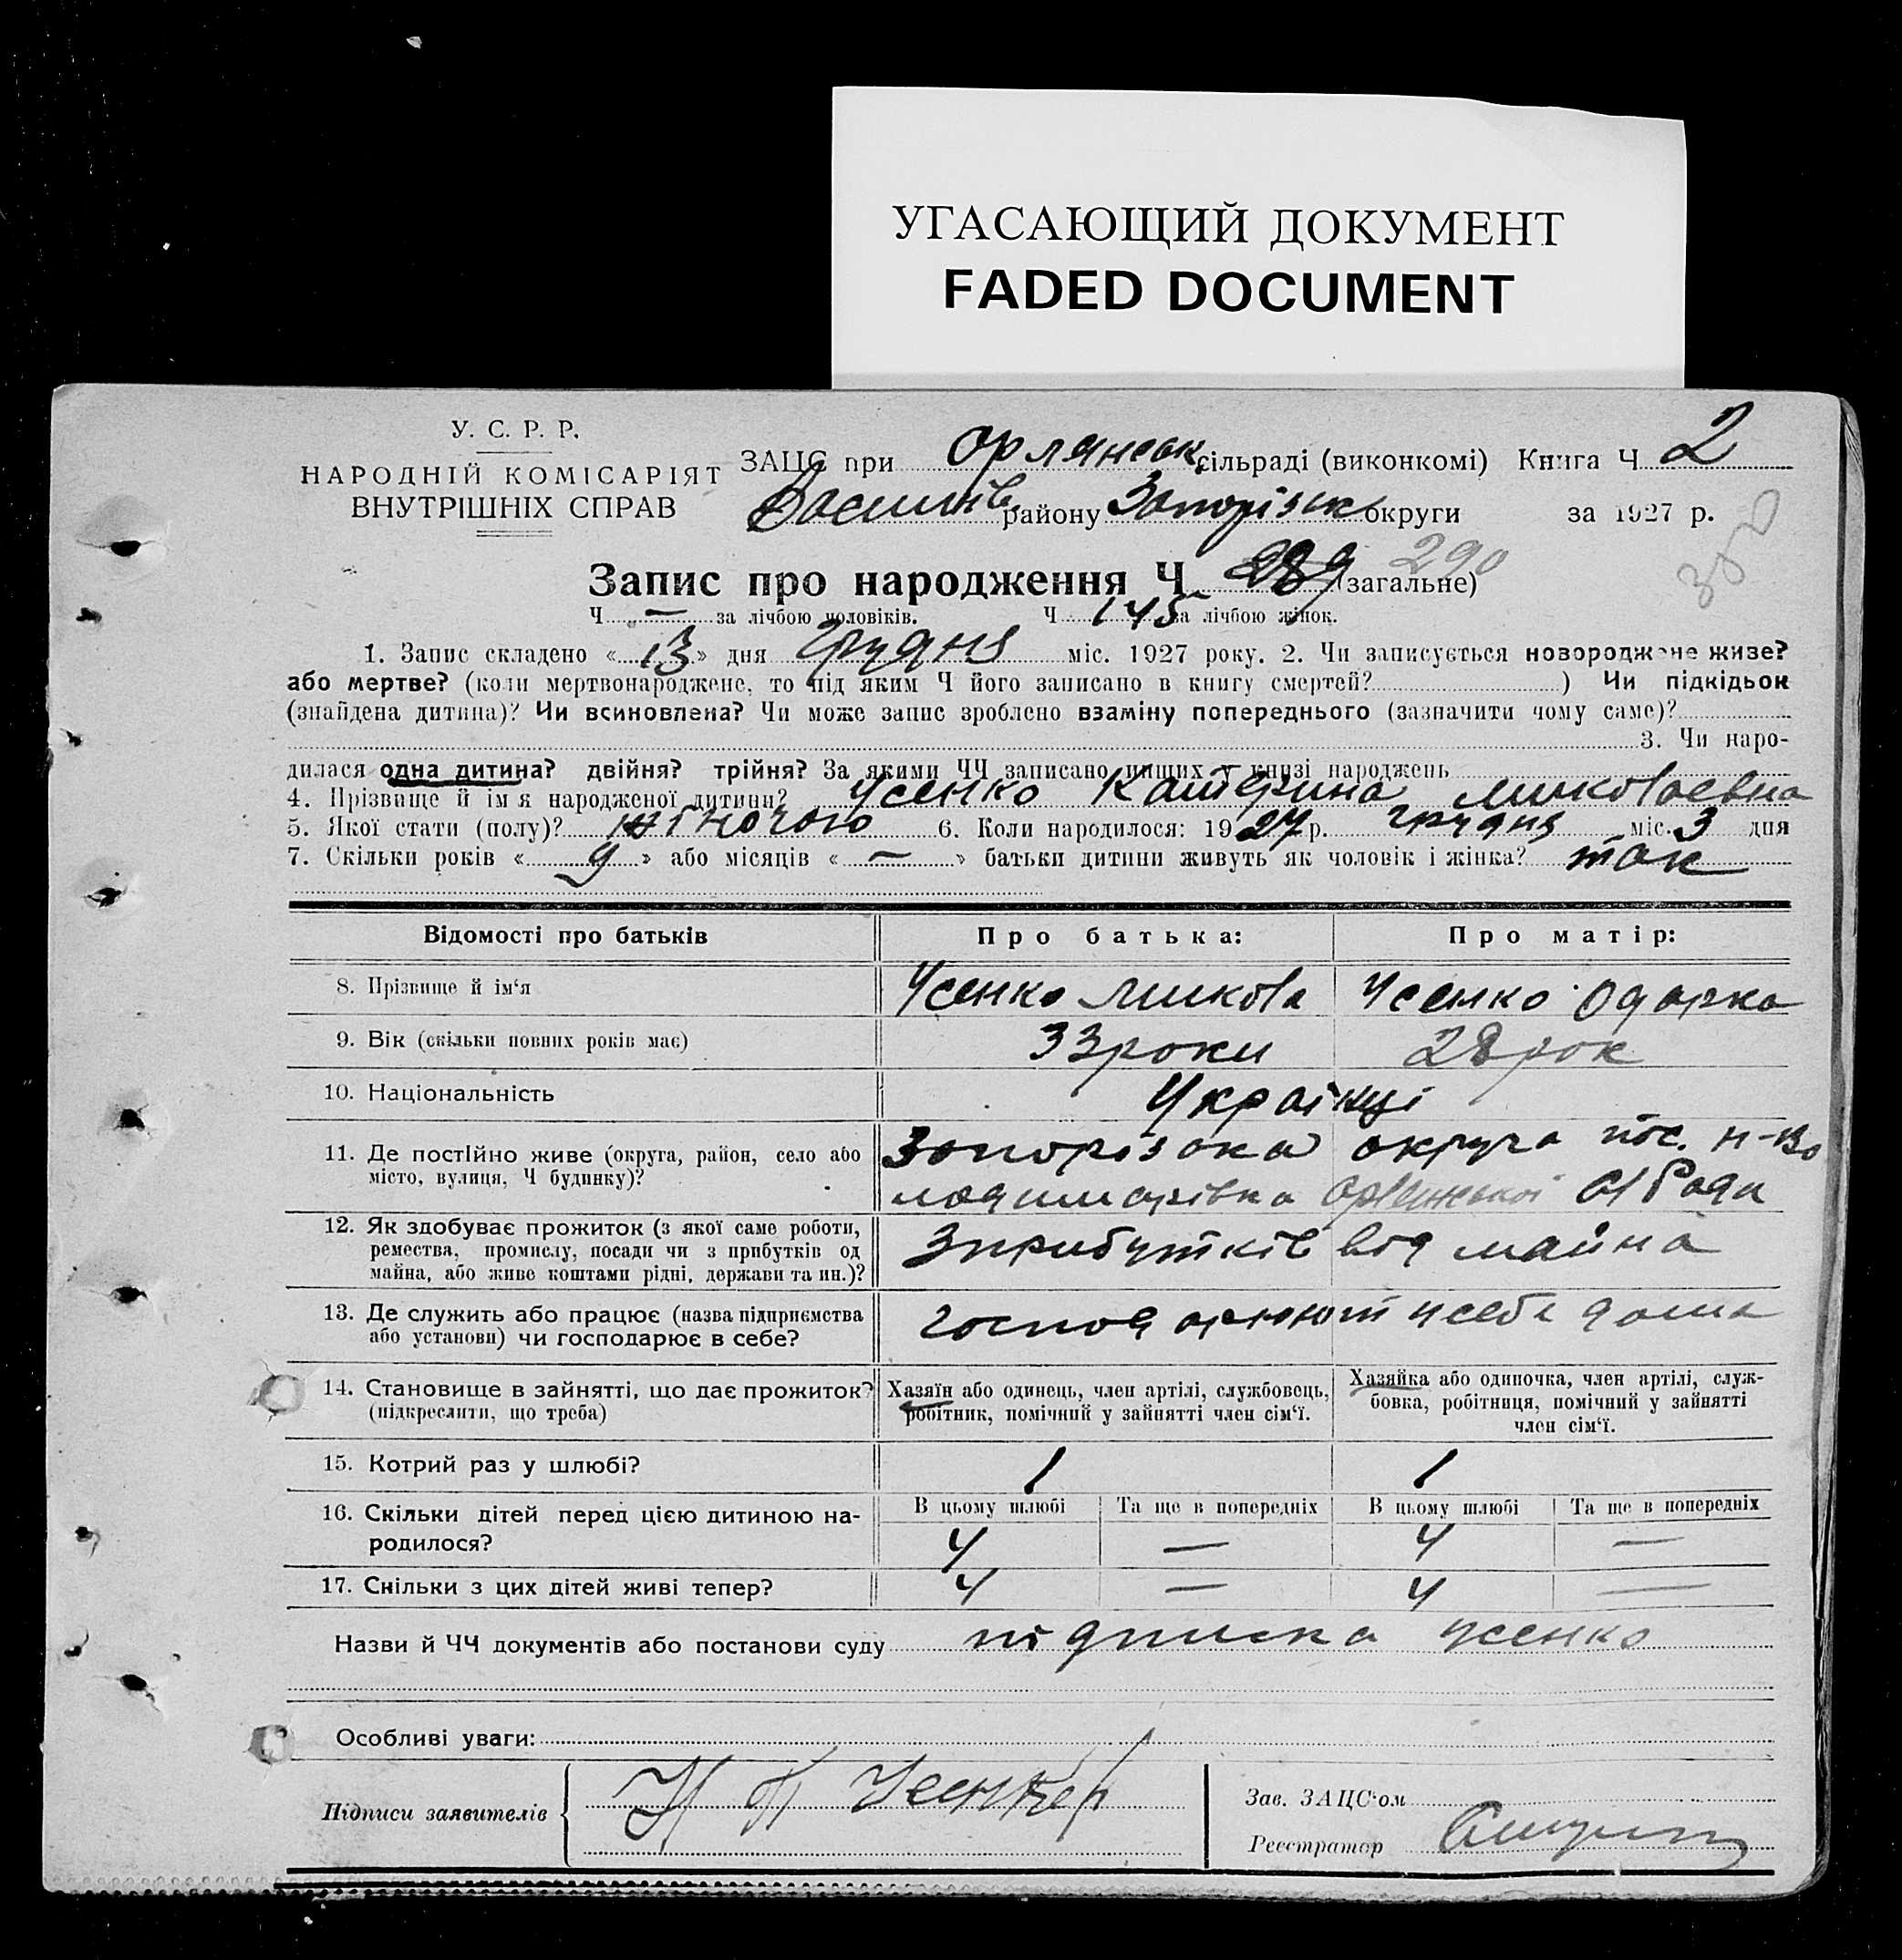 УГАСАЮЩИЙ ДОКУМЕНТ
FADED DOCUMENT
У. С. Р. Р.
НАРОДНІЙ КОМІСАРІЯТ
ВНУТРІШНІХ СПРАВ
ЗАЦС при Орлянськ. сільраді (виконкомі) Книга Ч 2
Василів району Запорізьк округи за 1927 р.
Запис про народження Ч 289 (загальне) 290
Ч — за лічбою чоловіків. Ч 145 за лічбою жінок.
1. Запис складено «13» дня Грудня міс. 1927 року. 2. Чи записується новороджене живе?
або мертве? (коли мертвонароджене, то під яким Ч його записано в книгу смертей? ) Чи підкідьок
(знайдена дитина)? Чи всиновлена? Чи може запис зроблено взаміну попереднього (зазначити чому саме)?
3. Чи наро-
дилася одна дитина? двійня? трійня? За якими ЧЧ записано инших у книзі народжень
4. Прізвище й ім'я народженої дитини? Усенко Катерина Миколаевна
5. Якої стати (полу)? жіночого 6. Коли народилося: 1927 р. грудня міс. 3 дня
7. Скільки років «9» або місяців «—» батьки дитини живуть як чоловік і жінка? так
Відомості про батьків Про батька: Про матір:
8. Прізвище й ім'я Усенко Микола Усенко Одарка
9. Вік (скільки повних років має) 33 роки 28 рок
10. Національність Українці
11. Де постійно живе (округа, район, село або Запорізька округа пос. Н-Во
місто, вулиця, Ч будинку)? лодимирівка Орлянської С/Ради
12. Як здобуває прожиток (з якої саме роботи,
ремества, промислу, посади чи з прибутків од З прибутків від майна
майна, або живе коштами рідні, держави та ин.)?
13. Де служить або працює (назва підприємства господарюют у себе дома
або установи) чи господарює в себе?
14. Становище в зайнятті, що дає прожиток? Хазяїн або одинець, член артілі, службовець, Хазяйка або одиночка, член артілі, служ-
(підкреслити, що треба) робітник, помічний у зайнятті член сім'ї. бовка, робітниця, помічний у зайнятті
член сім'ї.
15. Котрий раз у шлюбі? 1 1
16. Скільки дітей перед цією дитиною на- В цьому шлюбі Та ще в попередніх В цьому шлюбі Та ще в попередніх
родилося? 4 — 4 —
17. Скільки з цих дітей живі тепер? 4 — 4 —
Назви й ЧЧ документів або постанови суду підписка Усенко
Особливі уваги:
Підписи заявителів
Зав. ЗАЦС'ом
Реєстратор